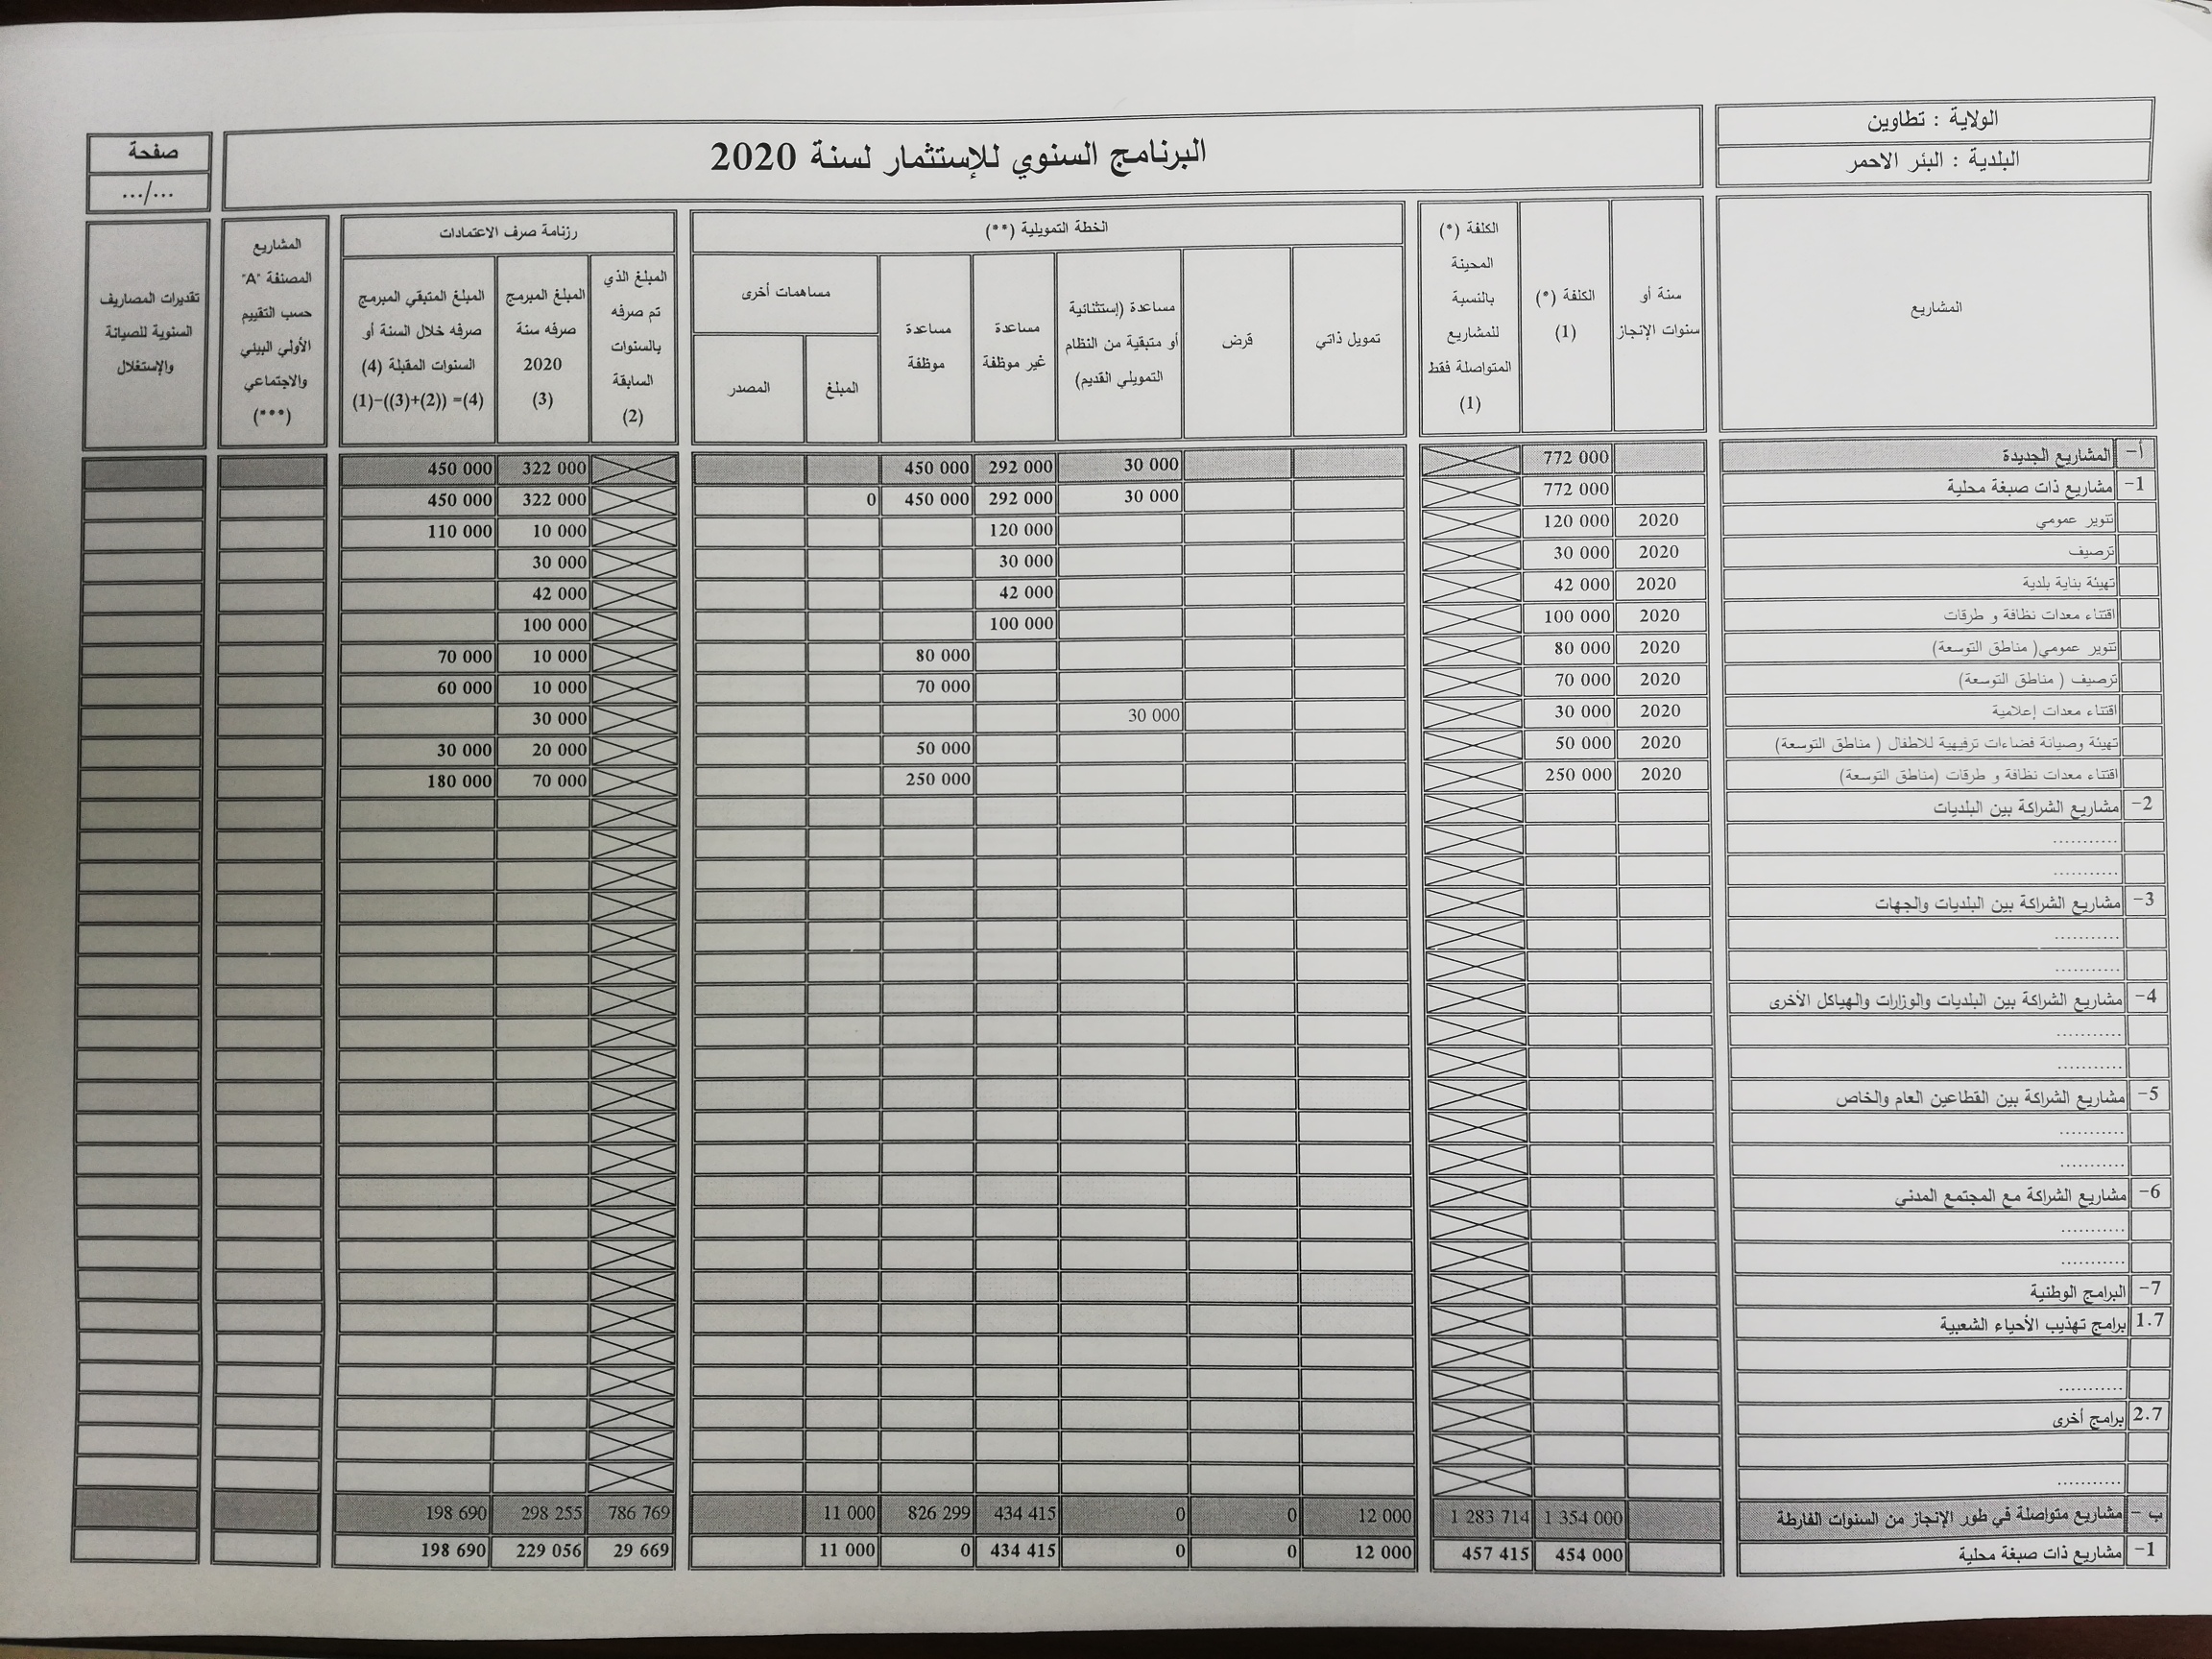 الولاية : تطاوين
البلدية : البئر الاحمر
البرنامج السنوي للإستثمار لسنة 2020
صفحة
.../...
المشاريع
سنة أو سنوات الإنجاز
الكلفة (*) (1)
الكلفة (*) المحينة بالنسبة للمشاريع المتواصلة فقط (1)
الخطة التمويلية (**)
تمويل ذاتي
قرض
مساعدة (إستثنائية أو متبقية من النظام التمويلي القديم)
مساعدة غير موظفة
مساعدة موظفة
مساهمات أخرى
المبلغ
المصدر
رزنامة صرف الاعتمادات
المبلغ الذي تم صرفه بالسنوات السابقة (2)
المبلغ المبرمج صرفه سنة 2020 (3)
المبلغ المتبقي المبرمج صرفه خلال السنة أو السنوات المقبلة (4) (4)= ((2)+(3))-(1)
المشاريع المصنفة "A" حسب التقييم الأولي البيئي والاجتماعي (***)
تقديرات المصاريف السنوية للصيانة والإستغلال
أ- المشاريع الجديدة 772 000 30 000 292 000 450 000 322 000 450 000
1- مشاريع ذات صبغة محلية 772 000 30 000 292 000 450 000 0 322 000 450 000
تنوير عمومي 2020 120 000 120 000 10 000 110 000
ترصيف 2020 30 000 30 000 30 000
تهيئة بناية بلدية 2020 42 000 42 000 42 000
اقتناء معدات نظافة و طرقات 2020 100 000 100 000 100 000
تنوير عمومي( مناطق التوسعة) 2020 80 000 80 000 10 000 70 000
ترصيف ( مناطق التوسعة) 2020 70 000 70 000 10 000 60 000
اقتناء معدات إعلامية 2020 30 000 30 000 30 000
تهيئة وصيانة فضاءات ترفيهية للاطفال ( مناطق التوسعة) 2020 50 000 50 000 20 000 30 000
اقتناء معدات نظافة و طرقات (مناطق التوسعة) 2020 250 000 250 000 70 000 180 000
2- مشاريع الشراكة بين البلديات
...........
...........
3- مشاريع الشراكة بين البلديات والجهات
...........
...........
4- مشاريع الشراكة بين البلديات والوزارات والهياكل الأخرى
...........
...........
5- مشاريع الشراكة بين القطاعين العام والخاص
...........
...........
6- مشاريع الشراكة مع المجتمع المدني
...........
...........
7- البرامج الوطنية
1.7 برامج تهذيب الأحياء الشعبية
...........
2.7 برامج أخرى
...........
ب - مشاريع متواصلة في طور الإنجاز من السنوات الفارطة 1 354 000 1 283 714 12 000 0 0 434 415 826 299 11 000 786 769 298 255 198 690
1- مشاريع ذات صبغة محلية 454 000 457 415 12 000 0 0 434 415 0 11 000 29 669 229 056 198 690